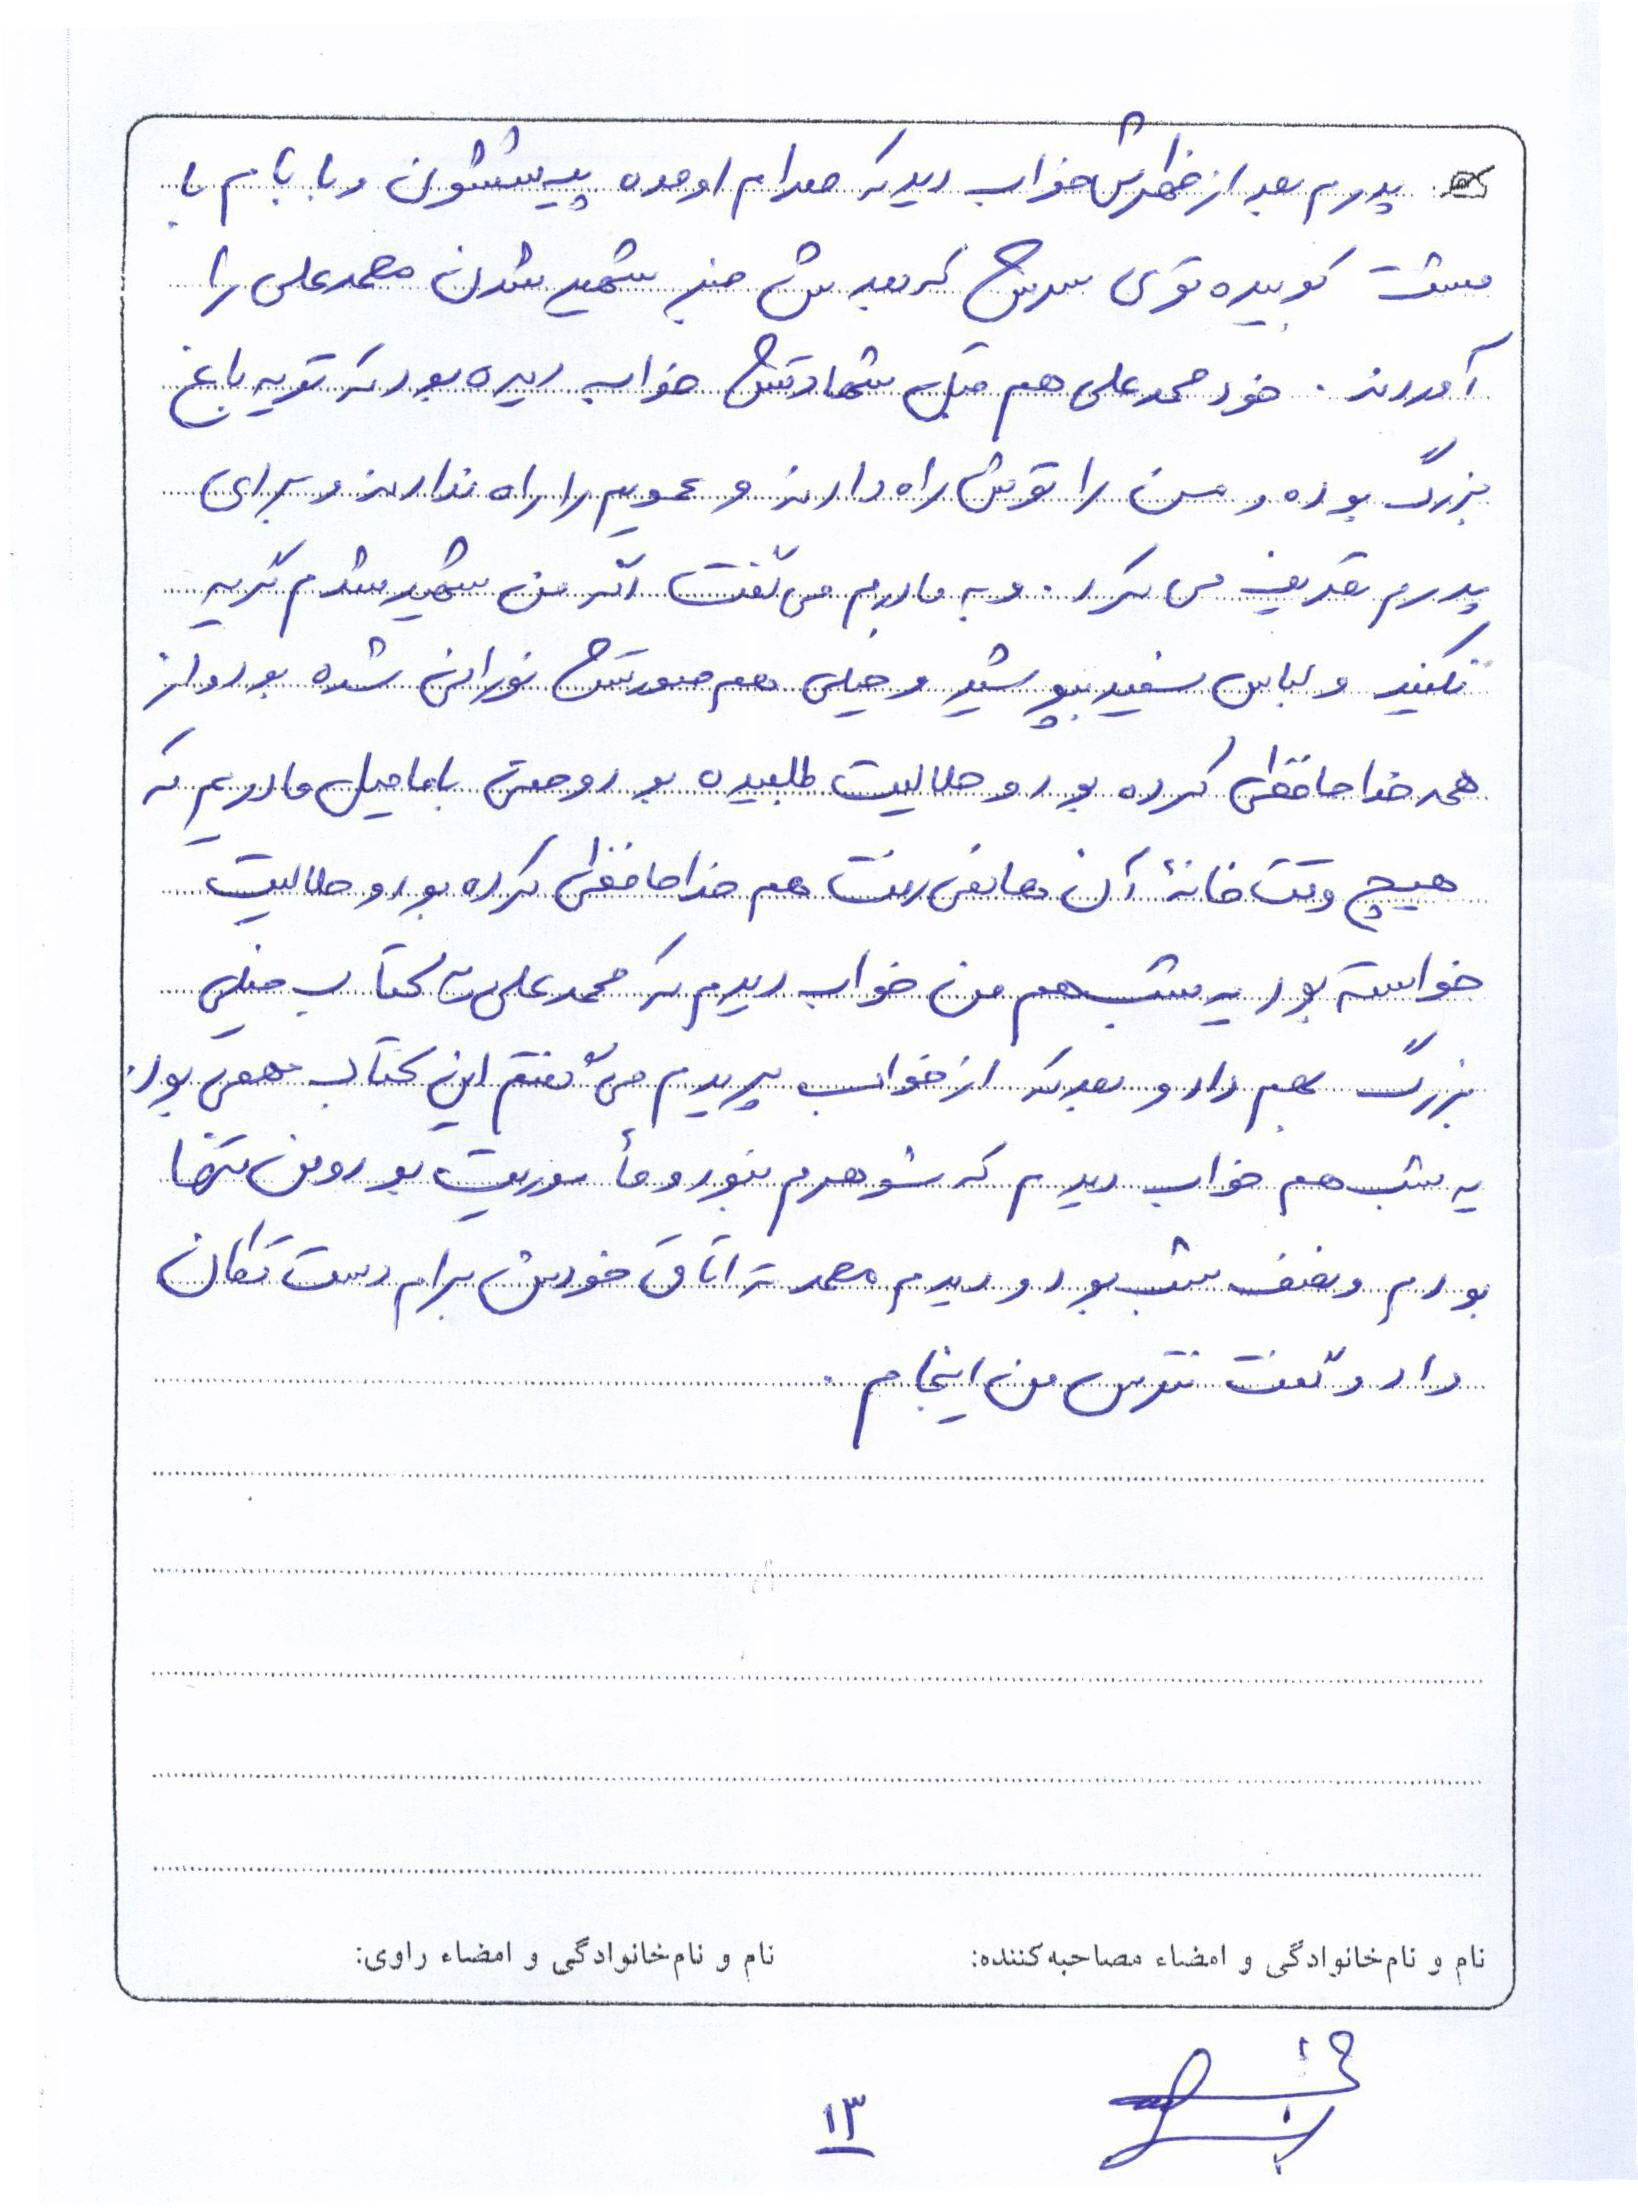 پدرم بعد از ظهرش خواب دید که صدام اومده پیششون و بابام با
مشت کوبیده توی سرش که بعدش خبر شهید شدن محمدعلی را
آوردند. خود محمدعلی هم قبل شهادتش خواب دیده بود که تو یه باغ
بزرگ بوده و من را توش راه دادند و عمویم را راه ندادند و برای
پدرم تعریف می کرد. و به مادرم می گفت اگر من شهید شدم گریه
نکنید و لباس سفید بپوشید و خیلی هم صورتش نورانی شده بود و از
همه خداحافظی کرده بود و حلالیت طلبیده بود و حتی با فامیل مادریم که
هیچ وقت خانهٔ آن ها نمی رفت هم خداحافظی کرده بود و حلالیت
خواسته بود یه شب هم من خواب دیدم که محمدعلی کتاب خیلی
بزرگ بهم داد و بعد که از خواب پریدم می گفتم این کتاب چی بود.
یه شب هم خواب دیدم که شوهرم نبود و مأموریت بود و من تنها
بودم و نصف شب بود و دیدم محمد تو اتاق خودش برام دست تکان
داد و گفت نترس من اینجام.
نام و نام‌خانوادگی و امضاء مصاحبه‌کننده:
نام و نام‌خانوادگی و امضاء راوی:
۱۳